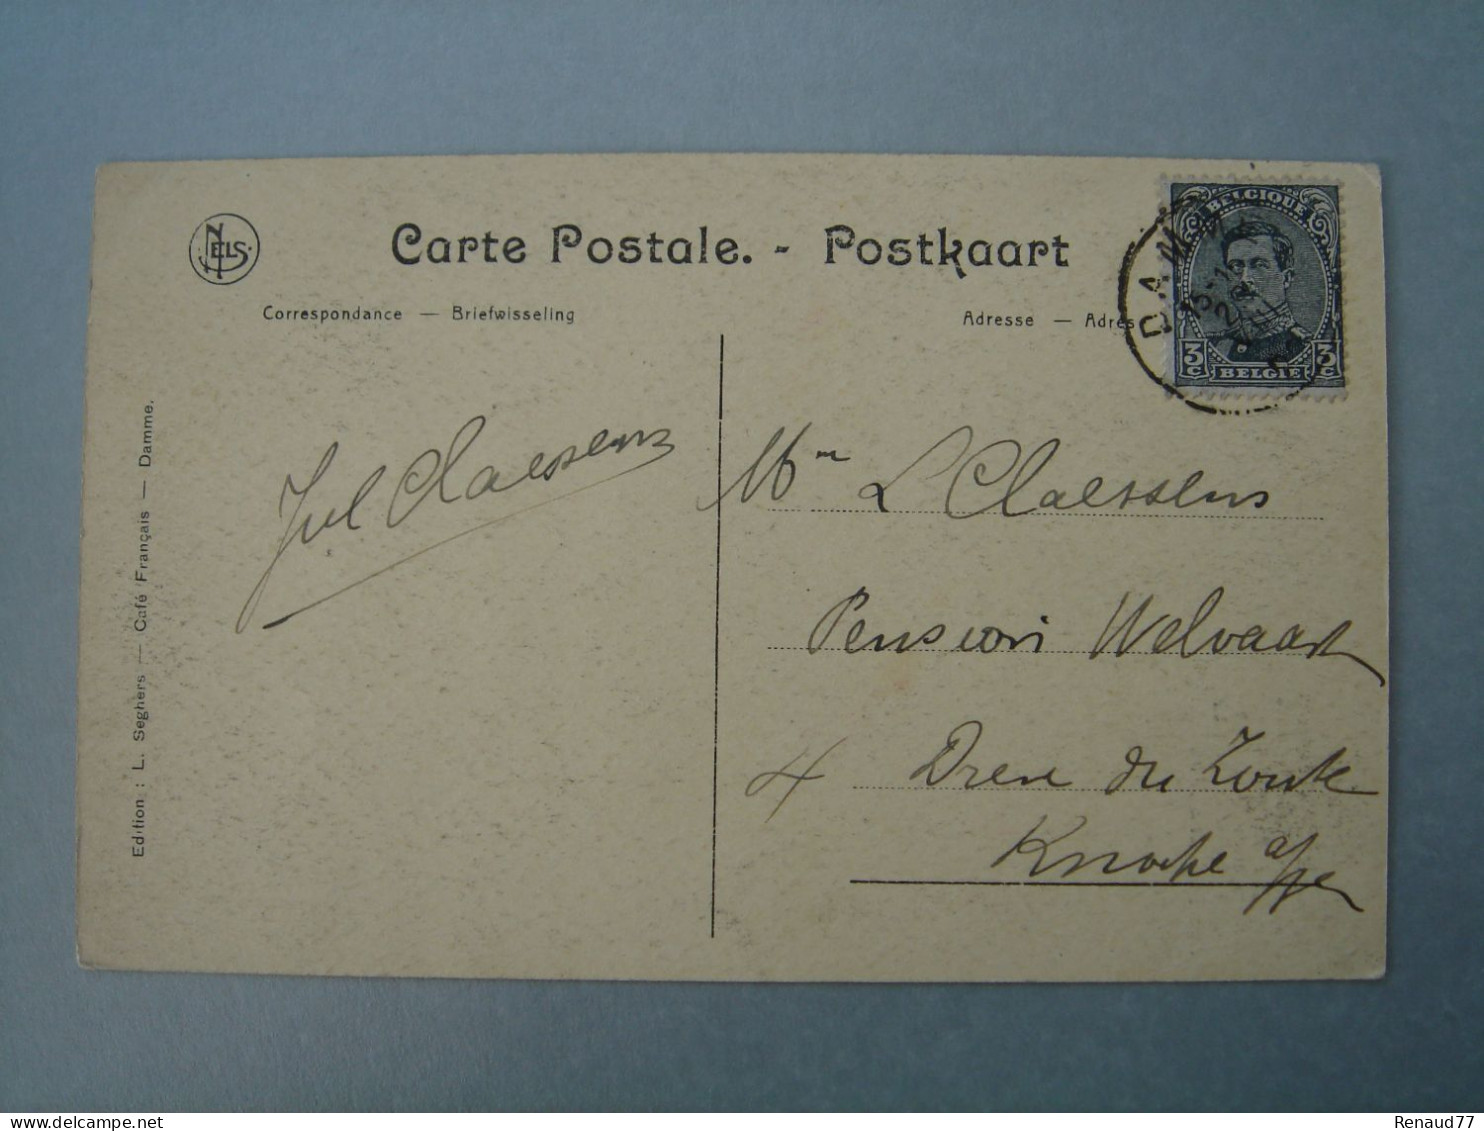 NELS
Carte Postale. - Postkaart
Correspondance — Briefwisseling
Adresse — Adres
BELGIQUE
DAMME
3 C BELGIE 3 C
Edition : L. Seghers — Café Français — Damme.
Jul Claessens
Mme L Claessens
Pension Welvaart
4 Dreve du Zoute
Knocke s/mer
delcampe.net
Renaud77